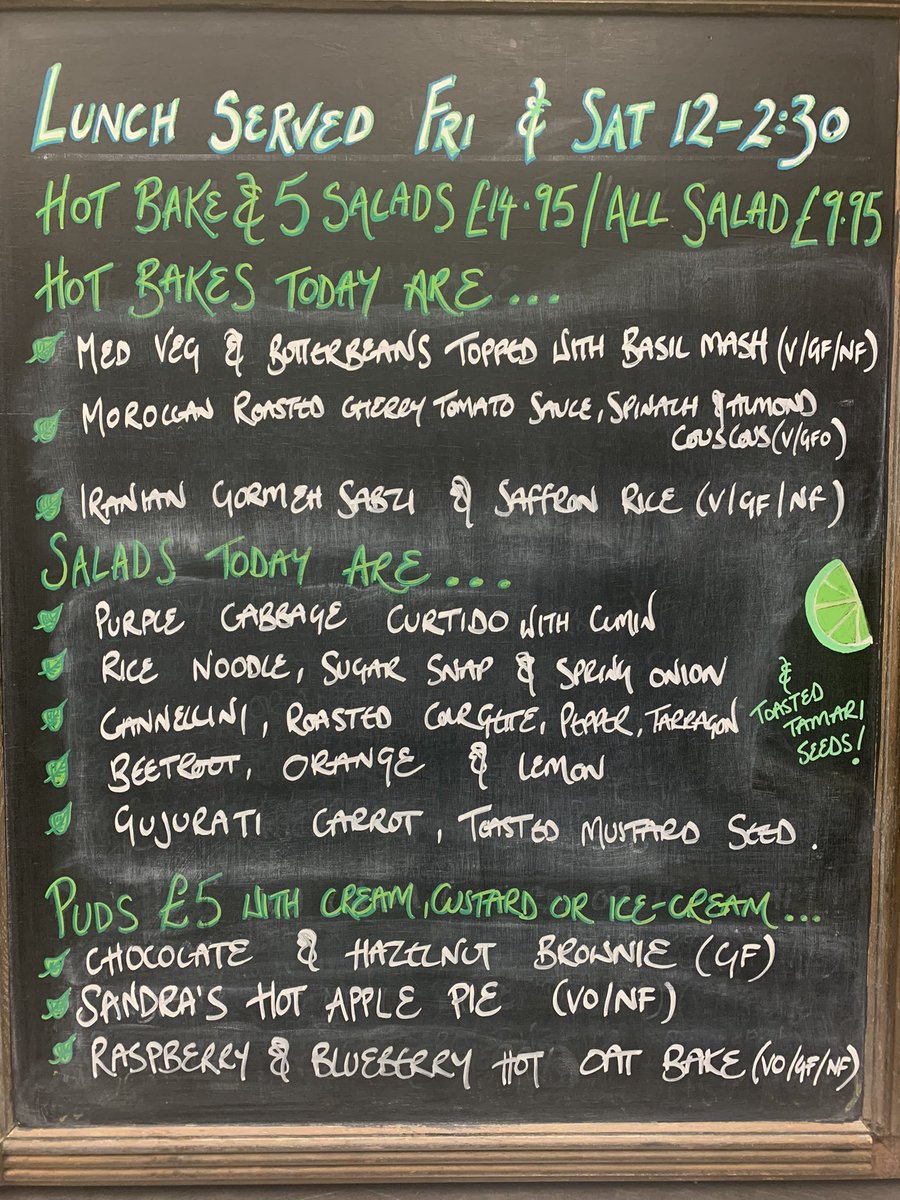 LUNCH SERVED FRI & SAT 12-2:30
HOT BAKE & 5 SALADS £14.95/ALL SALAD £9.95
HOT BAKES TODAY ARE...
MED VEG & BUTTERBEANS TOPPED WITH BASIL MASH (V/GF/NF)
MOROCCAN ROASTED CHERRY TOMATO SAUCE, SPINACH & ALMOND
COUSCOUS (V/GFO)
IRANIAN GORMEH SABZI & SAFFRON RICE (V/GF/NF)
SALADS TODAY ARE....
PURPLE CABBAGE CURTIDO WITH CUMIN
RICE NOODLE, SUGAR SNAP & SPRING ONION
CANNELLINI, ROASTED COURGETTE, PEPPER, TARRAGON
BEETROOT, ORANGE & LEMON
GUJURATI CARROT, TOASTED MUSTARD SEED.
& 
TOASTED
TAMARI
SEEDS!
PUDS £5 WITH CREAM, CUSTARD OR ICE-CREAM...
CHOCOLATE & HAZELNUT BROWNIE (GF)
SANDRA'S HOT APPLE PIE (VO/NF)
RASPBERRY & BLUEBERRY HOT OAT BAKE (VO/GF/NF)